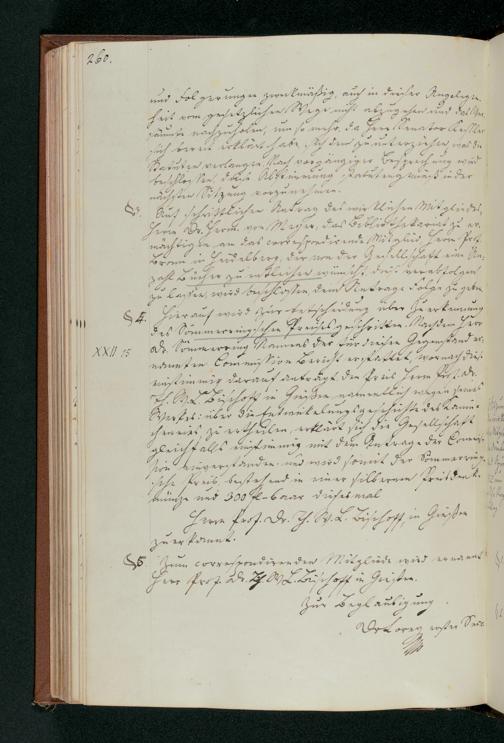 260.
und Folgerungen zweckmäßig, auch in dieser Angelegen-
heit vom gesetzlichen Wege nicht abzugehen und das Ver-
säumte nachzuholen, um so mehr, da Herr Senator Kessler
sich bereit erklärt habe, sich dem zu unterziehen was die
Statuten verlangen. Nach vorgängiger Besprechung wird
beschlossen, die Abstimmung statutengemäß in der
nächsten Sitzung vorzunehmen.
§3. Auf schriftlichen Antrag des wirklichen Mitgliedes,
Herrn Dr. Herm. von Meyer, das Bibliothekariat zu er-
mächtigen, an das correspondirende Mitglied Herrn Prof.
Bronn in Heidelberg, der von der Gesellschaft eine An-
zahl Bücher zu entleihen wünscht, diese verabfolgen
zu lassen, wird beschlossen dem Antrage Folge zu geben.
§4. Hierauf wird zur Entscheidung über Zuerkennung
des Sömmerringschen Preises geschritten. Nachdem Herr
XXII 15
Dr. Sömmerring Namens der für diesen Gegenstand er-
nannten Commission Bericht erstattet, wonach diese
einstimmig darauf anträgt, den Preis Herrn Prof. Dr.
Th. W. L. Bischoff in Giessen namentlich wegen seines
Werkes: über die Entwickelungsgeschichte des Kanin-
cheneies zu ertheilen, erklärt sich die Gesellschaft
gleichfalls einstimmig mit dem Antrage der Commis-
sion einverstanden und wird somit der Sömmerring-
sche Preis, bestehend in einer silbernen Preisdenk-
münze und 300 fl. baar dieses mal
Herrn Prof. Dr. Th. W. L. Bischoff in Giessen
zuerkannt.
§5 Zum correspondirenden Mitgliede wird ernannt
Herr Prof. Dr. Th. W. L. Bischoff in Giessen.
Zur Beglaubigung
erster Secr.